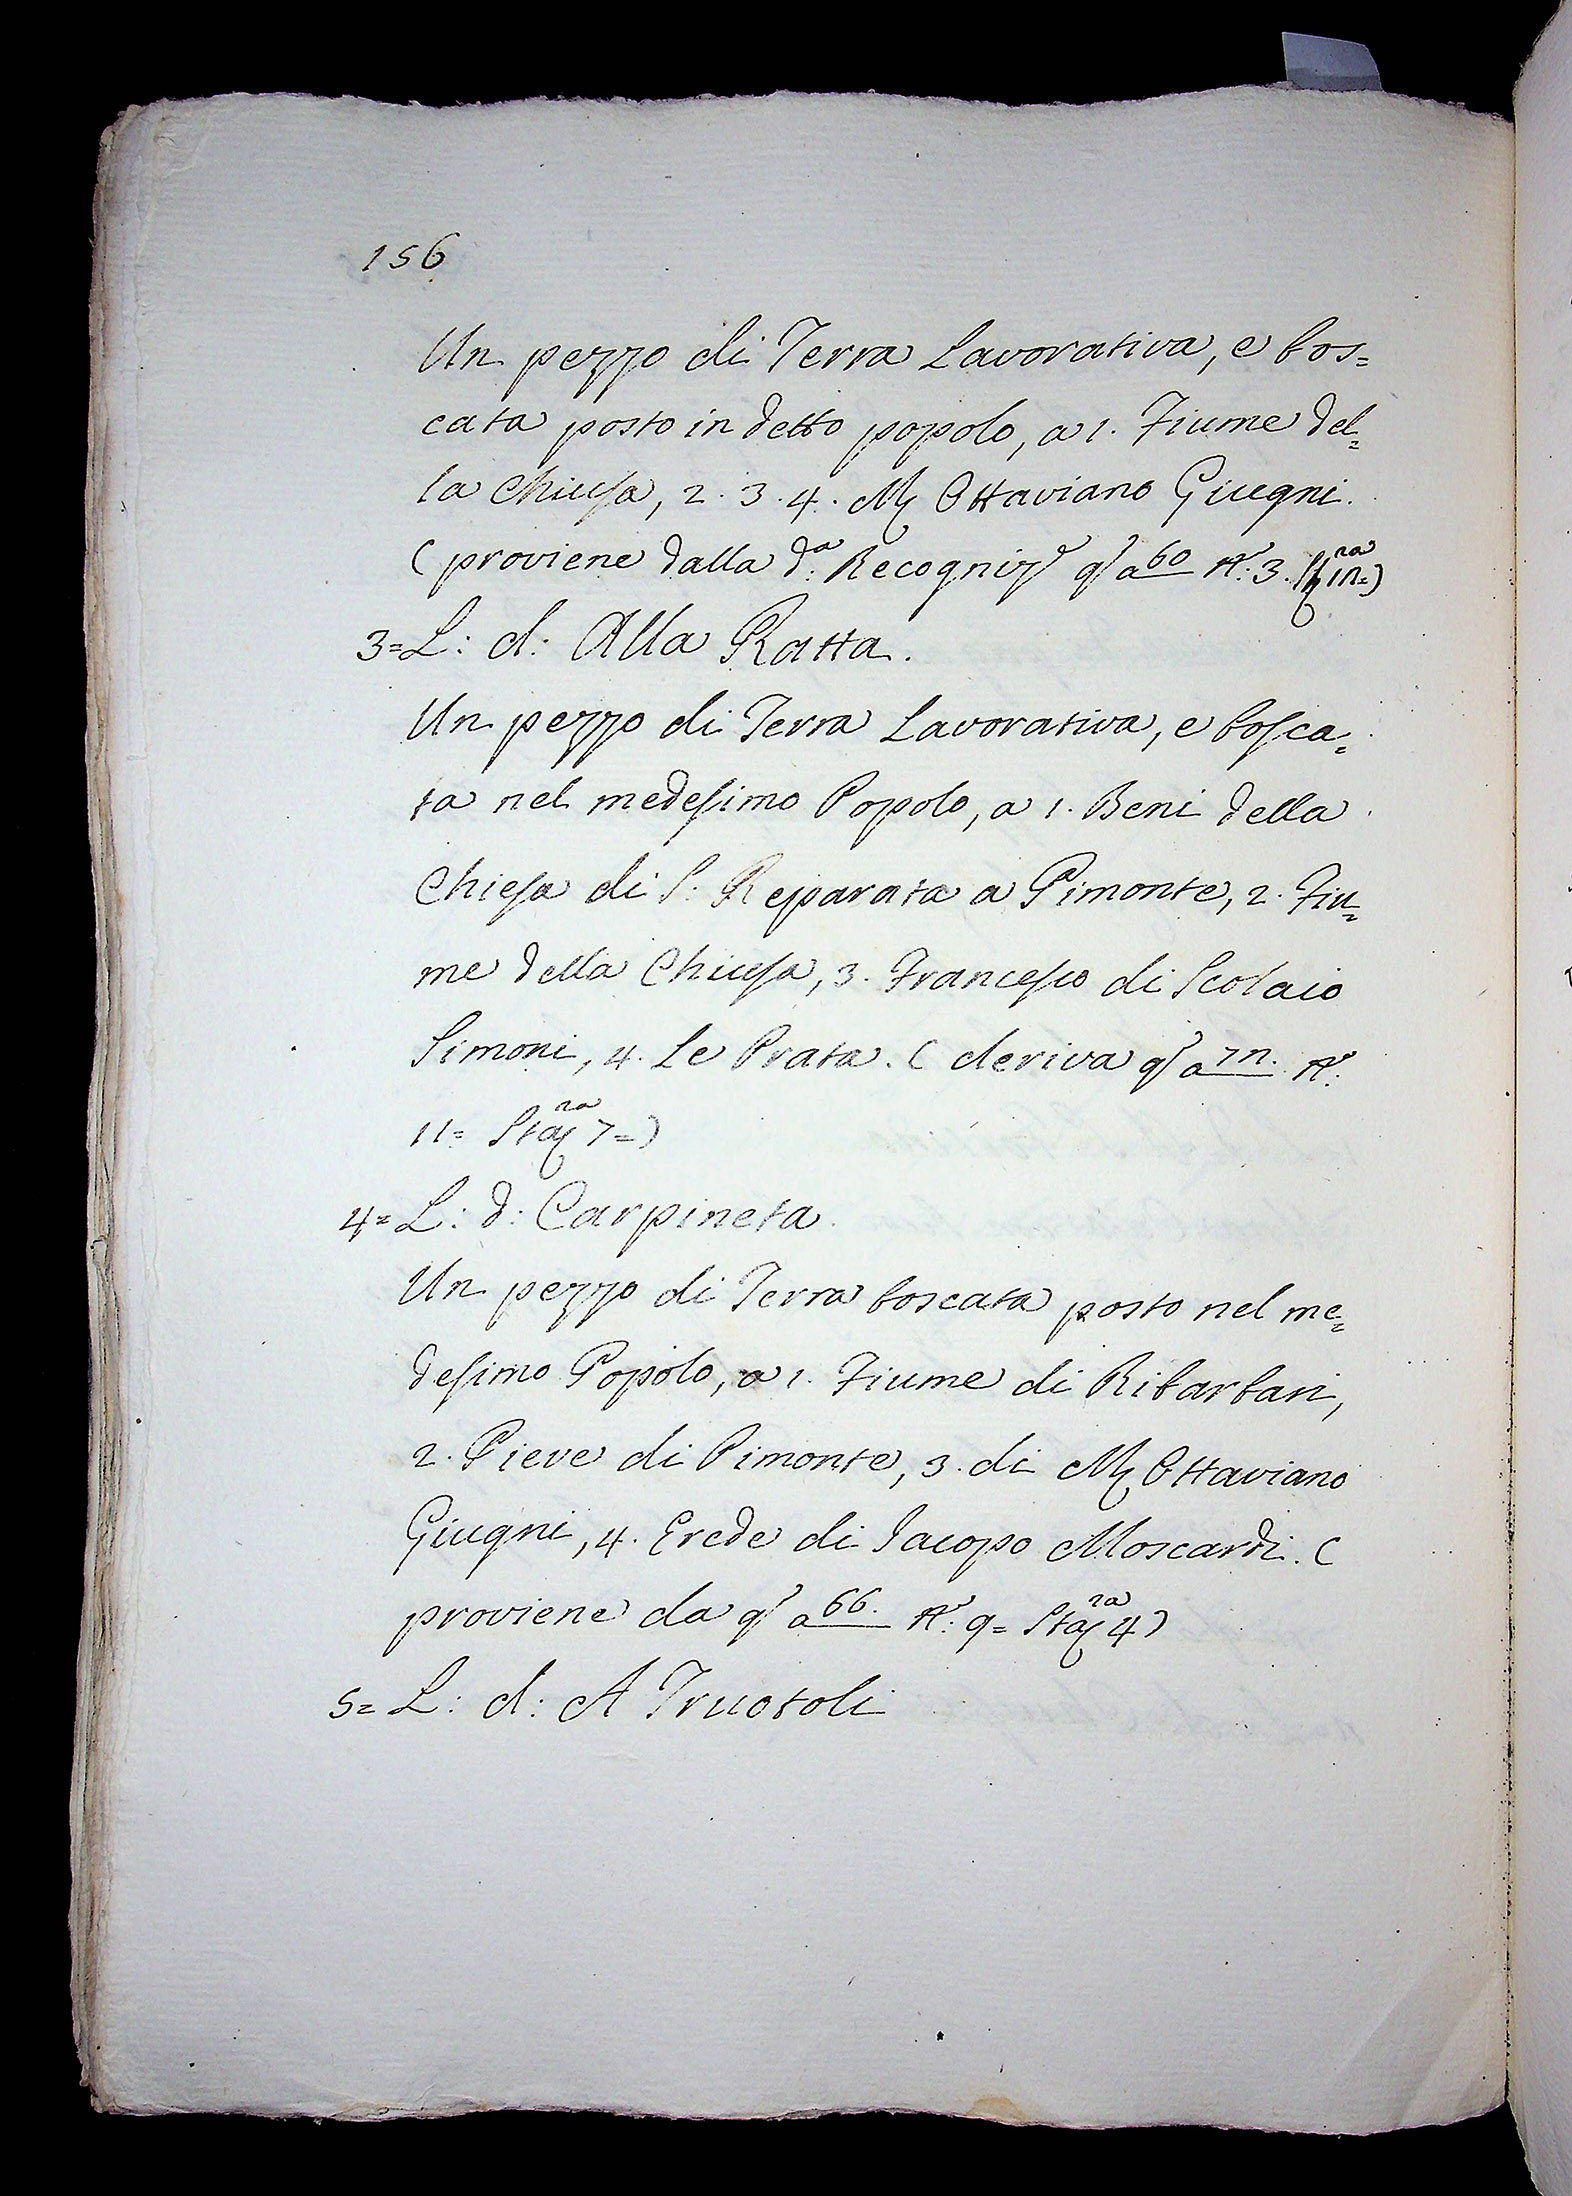 156
Un pezzo di Terra Lavorativa, e bos=
cata posto in detto popolo, a 1. Fiume del=
la Chiusa, 2. 3. 4. Mʃ Ottaviano Giugni.
(proviene dalla d.ª Recogniz.e q.o a 60 N.o: 3.
3= L: d: Alla Ratta.
Un pezzo di Terra Lavorativa, e bosca=
ta nel medesimo Popolo, a 1. Beni della
Chiesa di S: Reparata a Pimonte, 2. Fiu=
me della Chiusa, 3. Francesco di Scolaio
Simoni, 4. Le Prata. (deriva q.o a N.o:
11= Sta 7=)
4= L: d: Carpineta.
Un pezzo di Terra boscata posto nel me=
desimo Popolo, a 1. Fiume di Ribarbari,
2. Pieve di Pimonte, 3. di Mʃ Ottaviano
Giugni, 4. Erede di Iacopo Moscardi. (
proviene da q.o a 66. N.o: 9= Sta 4)
5= L: d: A Truotoli